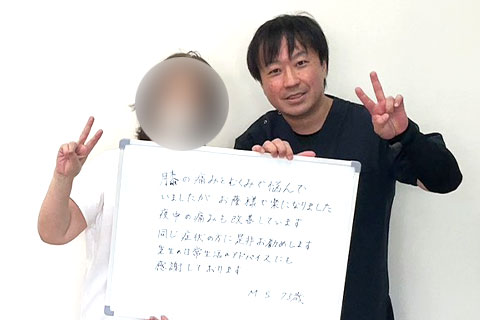 膝の痛みとむくみで悩んで
いましたがお蔭様で楽になりました
夜中の痛みも改善しています
同じ症状の方に是非お勧めします
先生の日常生活のアドバイスにも
感謝しております
M S 73歳